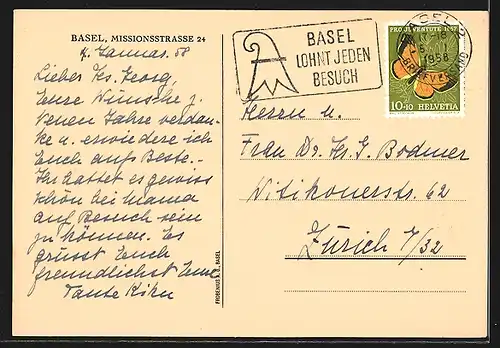 BASEL, MISSIONSSTRASSE 24
4. Januar 58
Lieber Hs. Georg,
Eure Wünsche z.
Neuen Jahre verdan-
ke u. erwiedere ich
Euch aufs Beste.-
Ihr hattet es gewiss
schön bei Mama
auf Besuch sein
zu können. Es
grüsst Euch
freundlichst Eure
Tante
FROBENIUS A.G. BASEL
BASEL
LOHNT JEDEN
BESUCH
BASEL 2
1958
BRIEFVERSAND
PRO JUVENTUTE 1957
10+10 HELVETIA
Herrn u.
Frau Dr. Hs. G. Bodmer
Witikonerstr. 62
Zürich 7/32